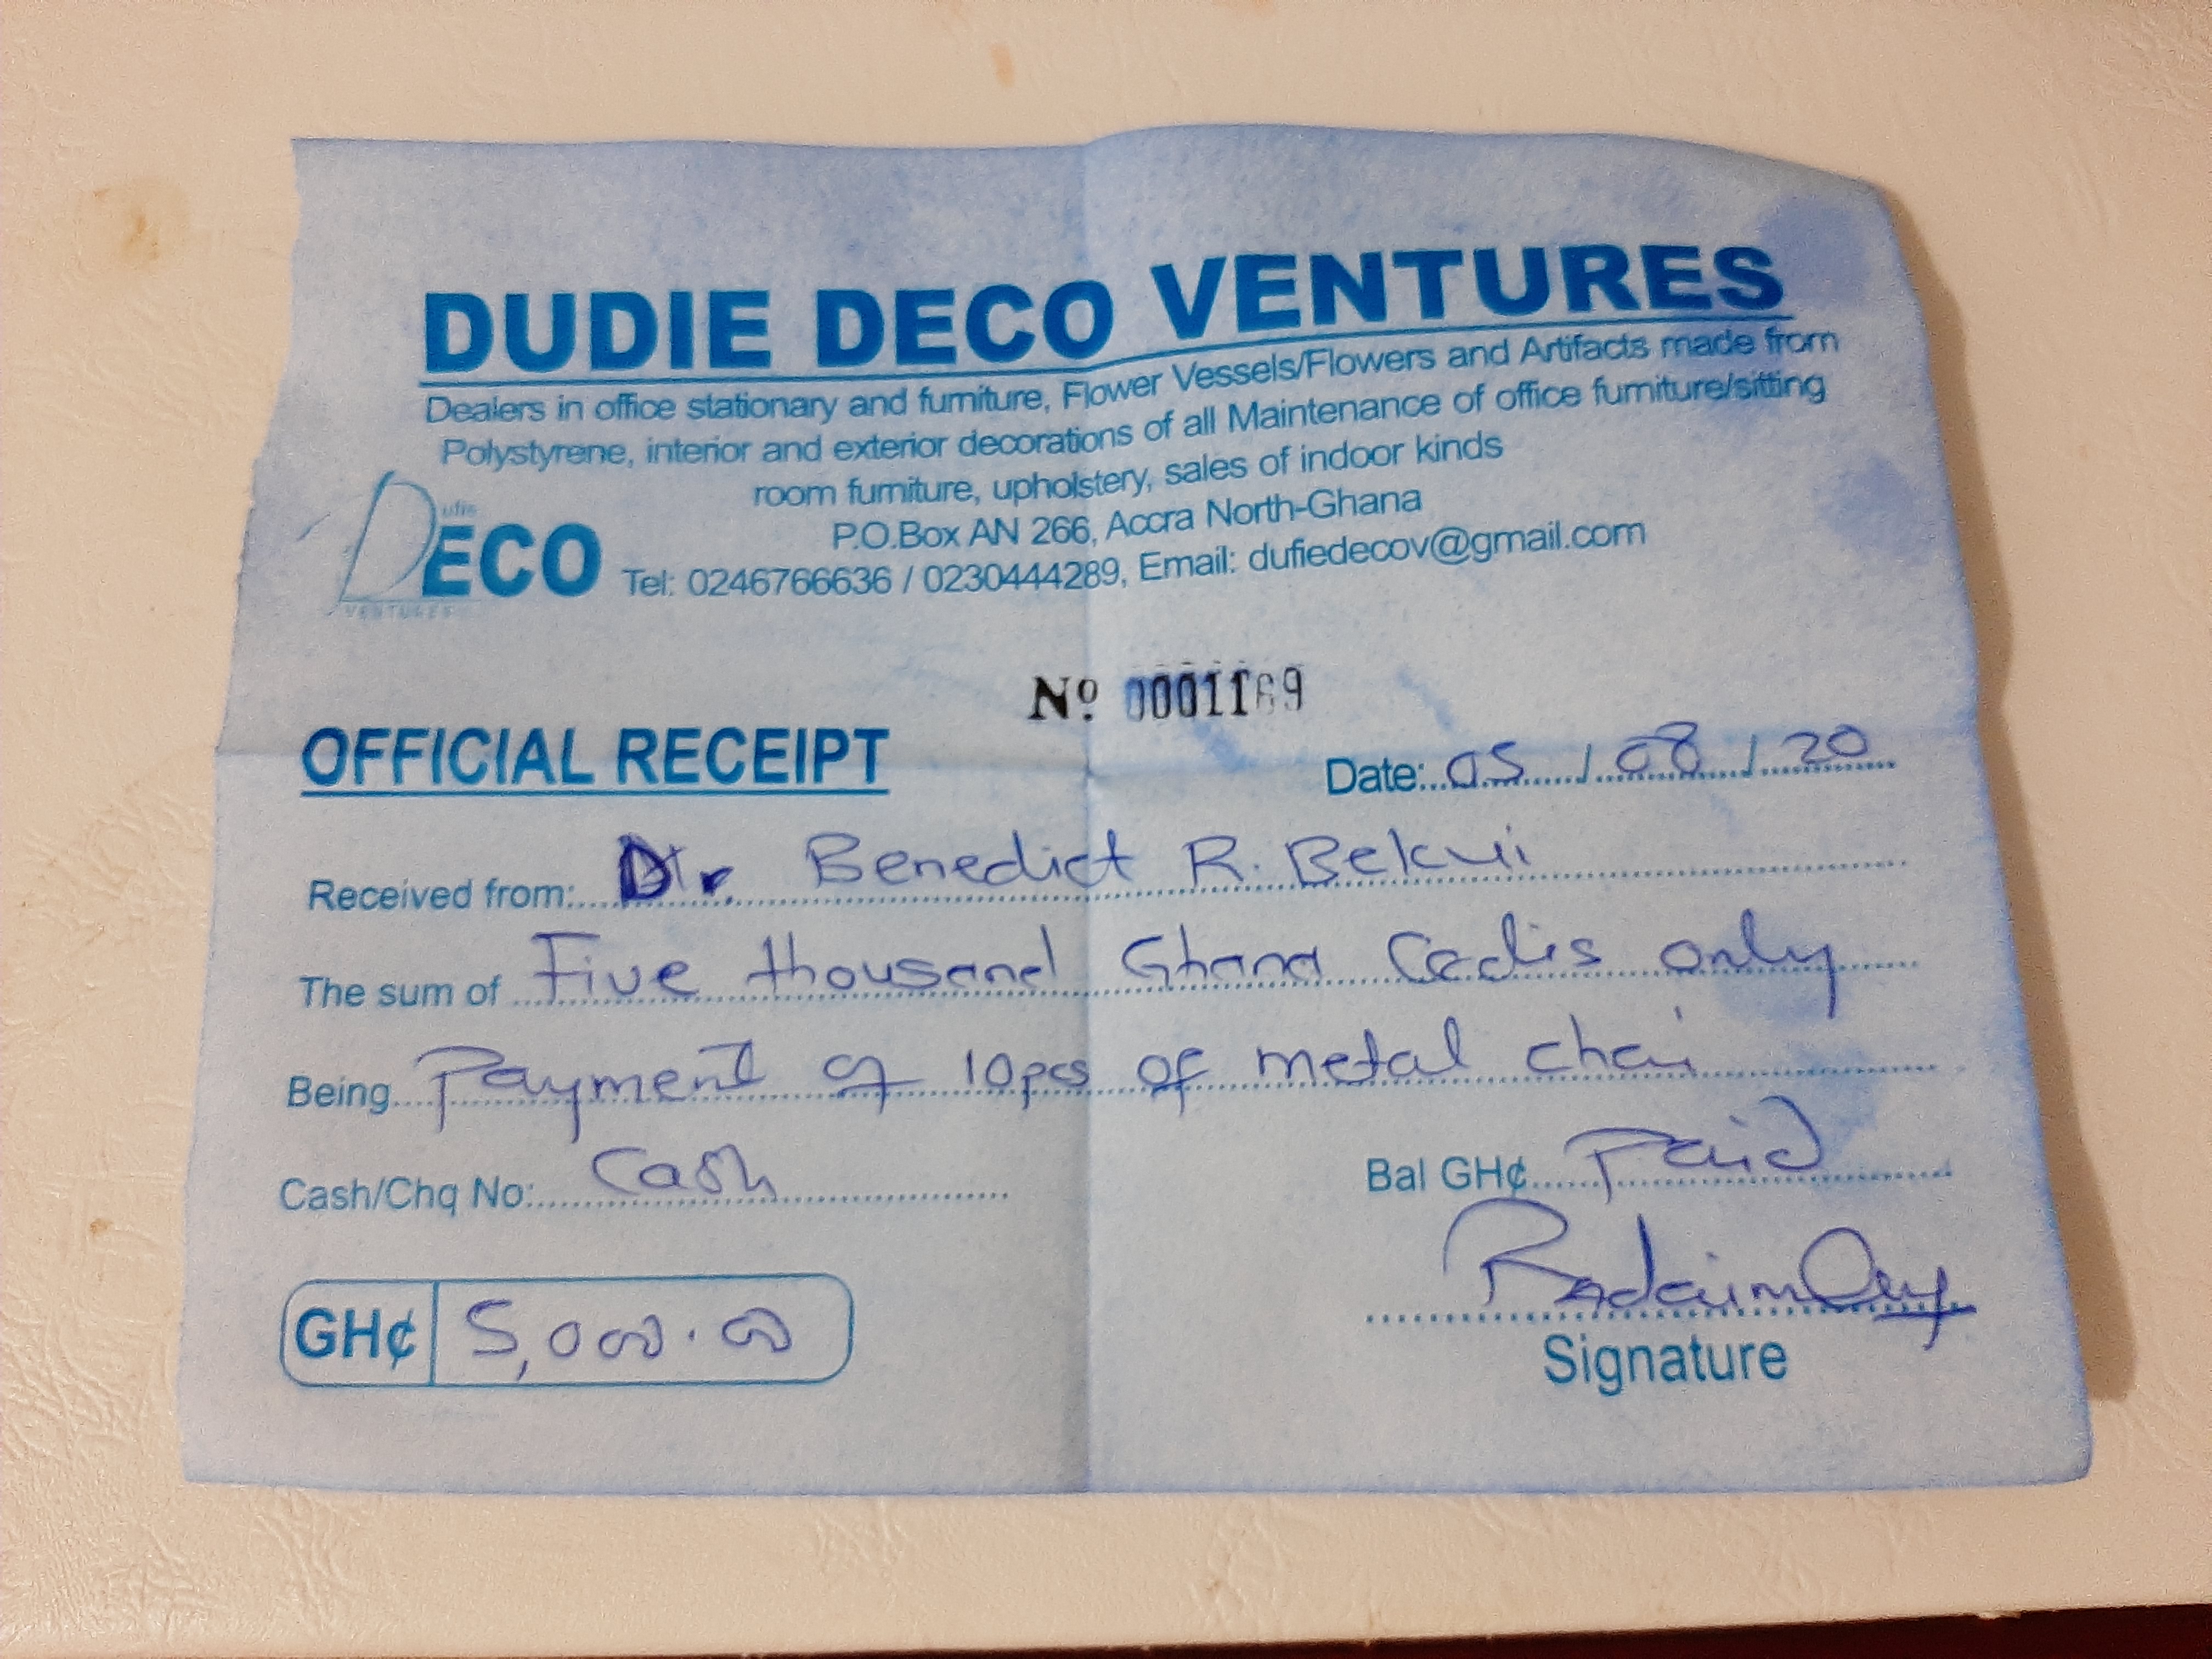 DUDIE DECO VENTURES
Dealers in office stationary and furniture, Flower Vessels/Flowers and Artifacts made from
Polystyrene, interior and exterior decorations of all Maintenance of office furniture/sitting
room furniture, upholstery, sales of indoor kinds
P.O.Box AN 266, Accra North-Ghana
Dufie
DECO
VENTURES
Tel: 0246766636 / 0230444289, Email: dufiedecov@gmail.com
Nº 0001169
OFFICIAL RECEIPT
Date: 05 / 08 / 20
Received from: Dr. Benedict R. Bekui
The sum of Five thousand Ghana Cedis only
Being Payment of 10pcs of metal chai
Cash/Chq No: Cash
Bal GH¢ Paid
GH¢ 5,000.00
Signature